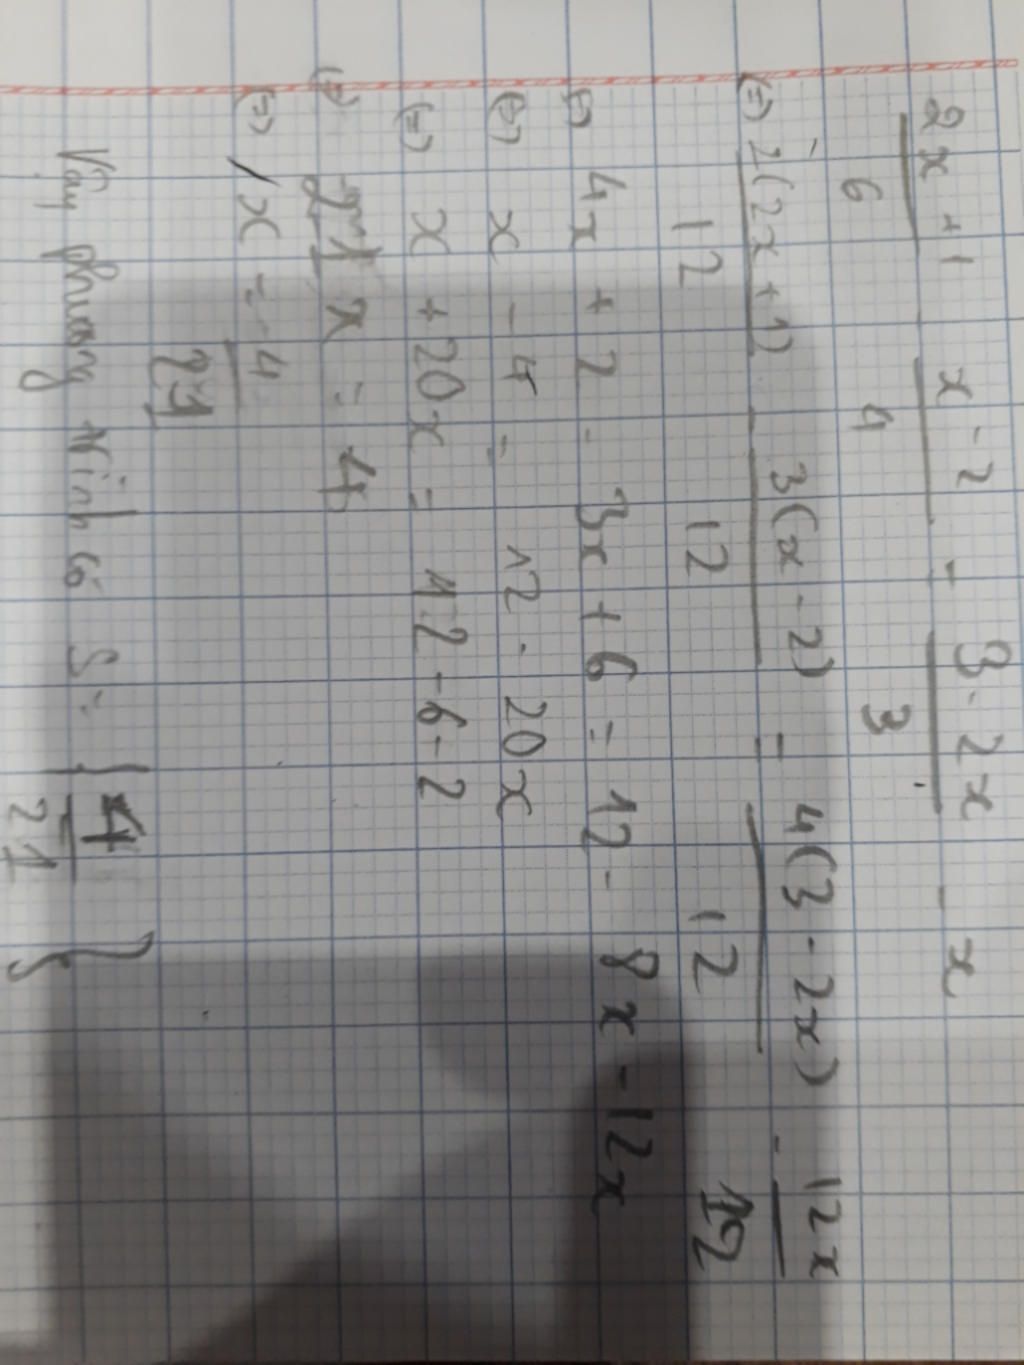 2x + 1 / 6 - x - 2 / 4 = 3 - 2x / 3 - x
(=) 2(2x + 1) / 12 - 3(x - 2) / 12 = 4(3 - 2x) / 12 - 12x / 12
(=) 4x + 2 - 3x + 6 = 12 - 8x - 12x
(=) x - 4 = 12 - 20x
(=) x + 20x = 12 - 6 - 2
(=) 21 x = 4
(=) x = 4 / 21
Vậy phương trình có S = { 4 / 21 }